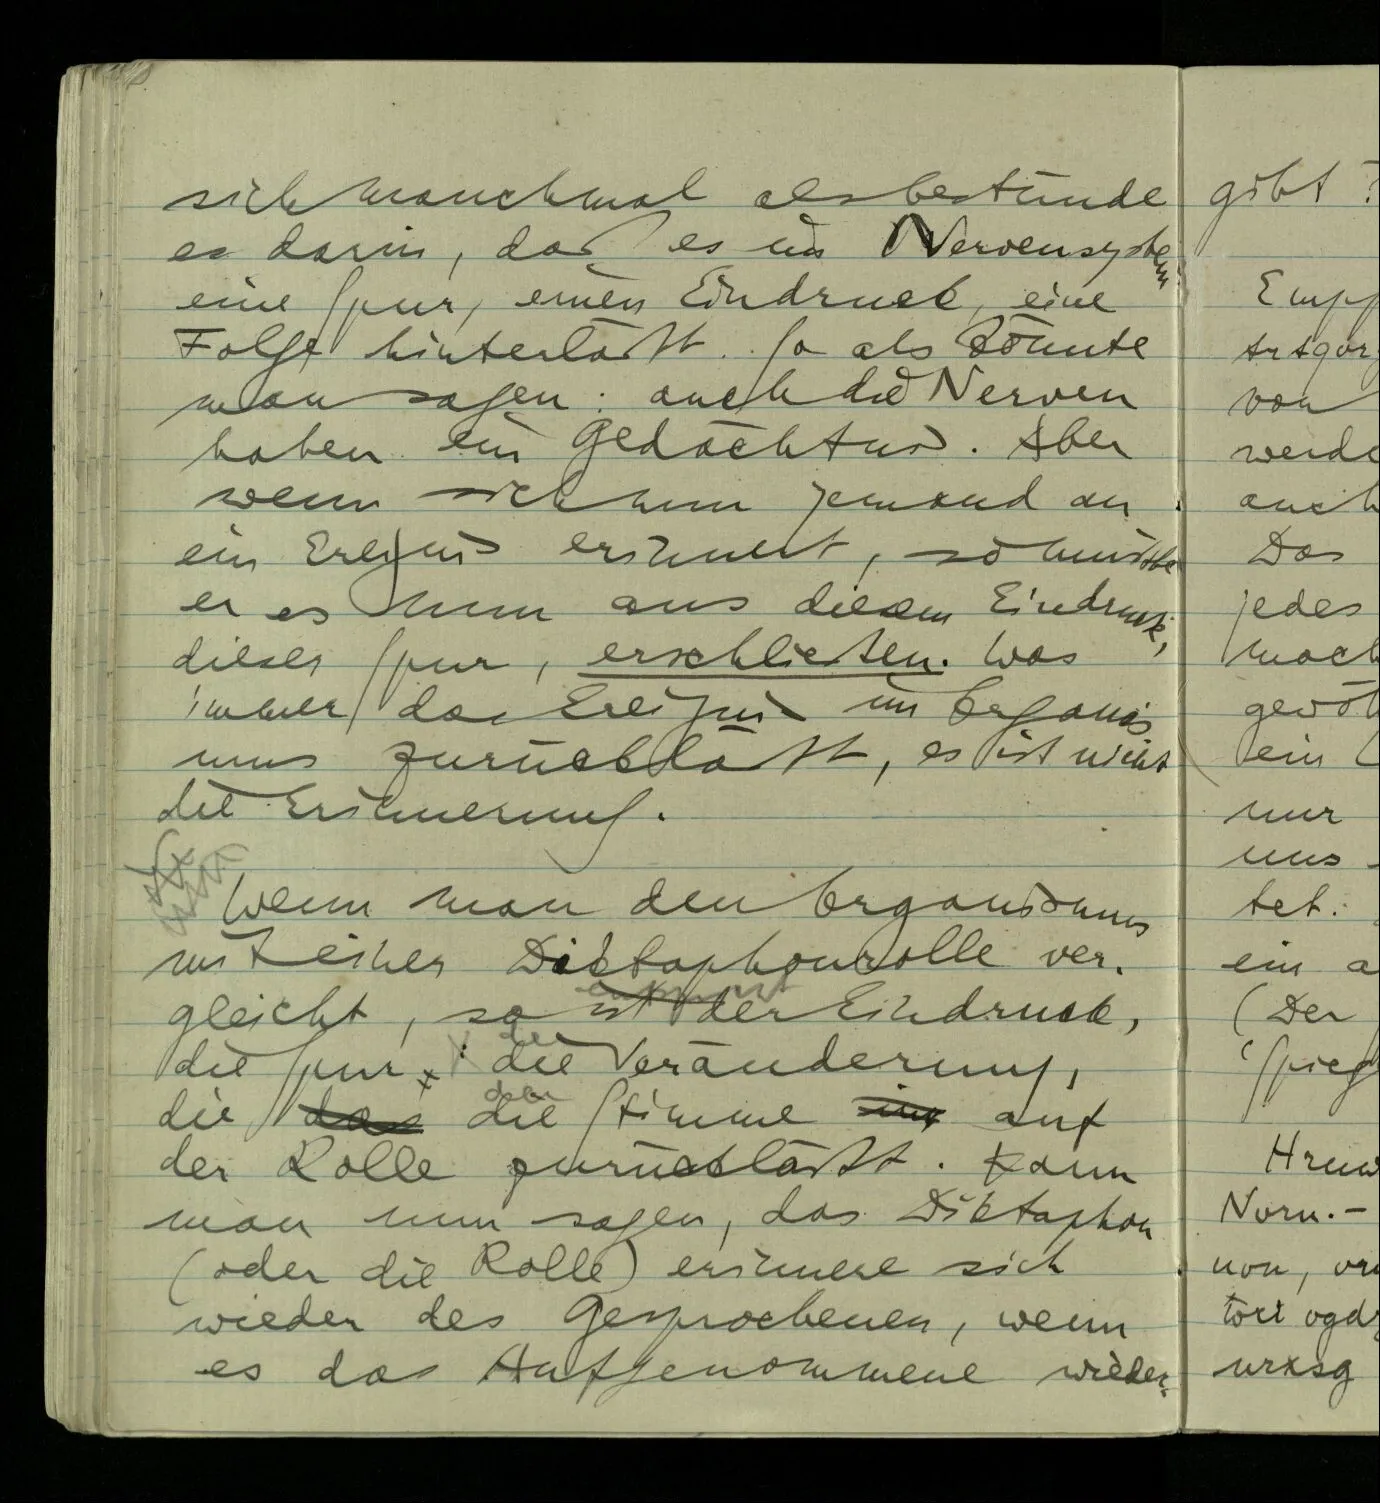 sich manchmal als bestünde
es darin, daß es im Nervensystem
eine Spur, einen Eindruck, eine
Folge hinterläßt. So als könnte
man sagen: auch die Nerven
haben ein Gedächtnis. Aber
wenn sich nun jemand an
ein Ereignis erinnert, so müßte
er es nun aus diesem Eindruck,
dieser Spur, erschließen. Was
immer das Ereignis im Organis
mus zurückläßt, es ist nicht
die Erinnerung.
Wenn man den Organismus
mit einer Diktaphonrolle ver-
gleicht, so ist der Eindruck,
die Spur, die Veränderung,
die die Stimme auf
der Rolle zurückläßt. Kann
man nun sagen, das Diktaphon
(oder die Rolle) erinnere sich
wieder des Gesprochenen, wenn
es das Aufgenommene wieder-
gibt?
von
auch
Das
jedes
ein
nur
uns
tet.
ein a
(Der
Norn.–